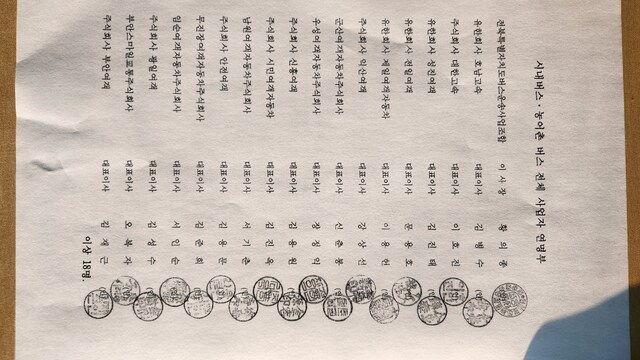 시내버스·농어촌 버스 전체 사업자 연명부
전북특별자치도버스운송사업조합 이 사 장 황 의 종
유한회사 호남고속 대표이사 김 병 수
주식회사 대한고속 대표이사 이 호 진
유한회사 성진여객 대표이사 김 진 태
유한회사 전일여객 대표이사 문 용 호
유한회사 제일여객자동차 대표이사 이 용 현
주식회사 익산여객 대표이사 강 상 선
군산여객자동차주식회사 대표이사 신 춘 풍
우성여객자동차주식회사 대표이사 장 정 익
주식회사 신흥여객 대표이사 김 웅 원
주식회사 시민여객자동차 대표이사 김 진 욱
남원여객자동차주식회사 대표이사 서 기 춘
주식회사 안전여객 대표이사 김 용 문
무진장여객자동차주식회사 대표이사 김 준 희
임순여객자동차주식회사 대표이사 서 인 순
주식회사 광일여객 대표이사 김 성 수
부안스마일교통주식회사 대표이사 오 복 자
주식회사 부안여객 대표이사 김 재 근
이상 18명.